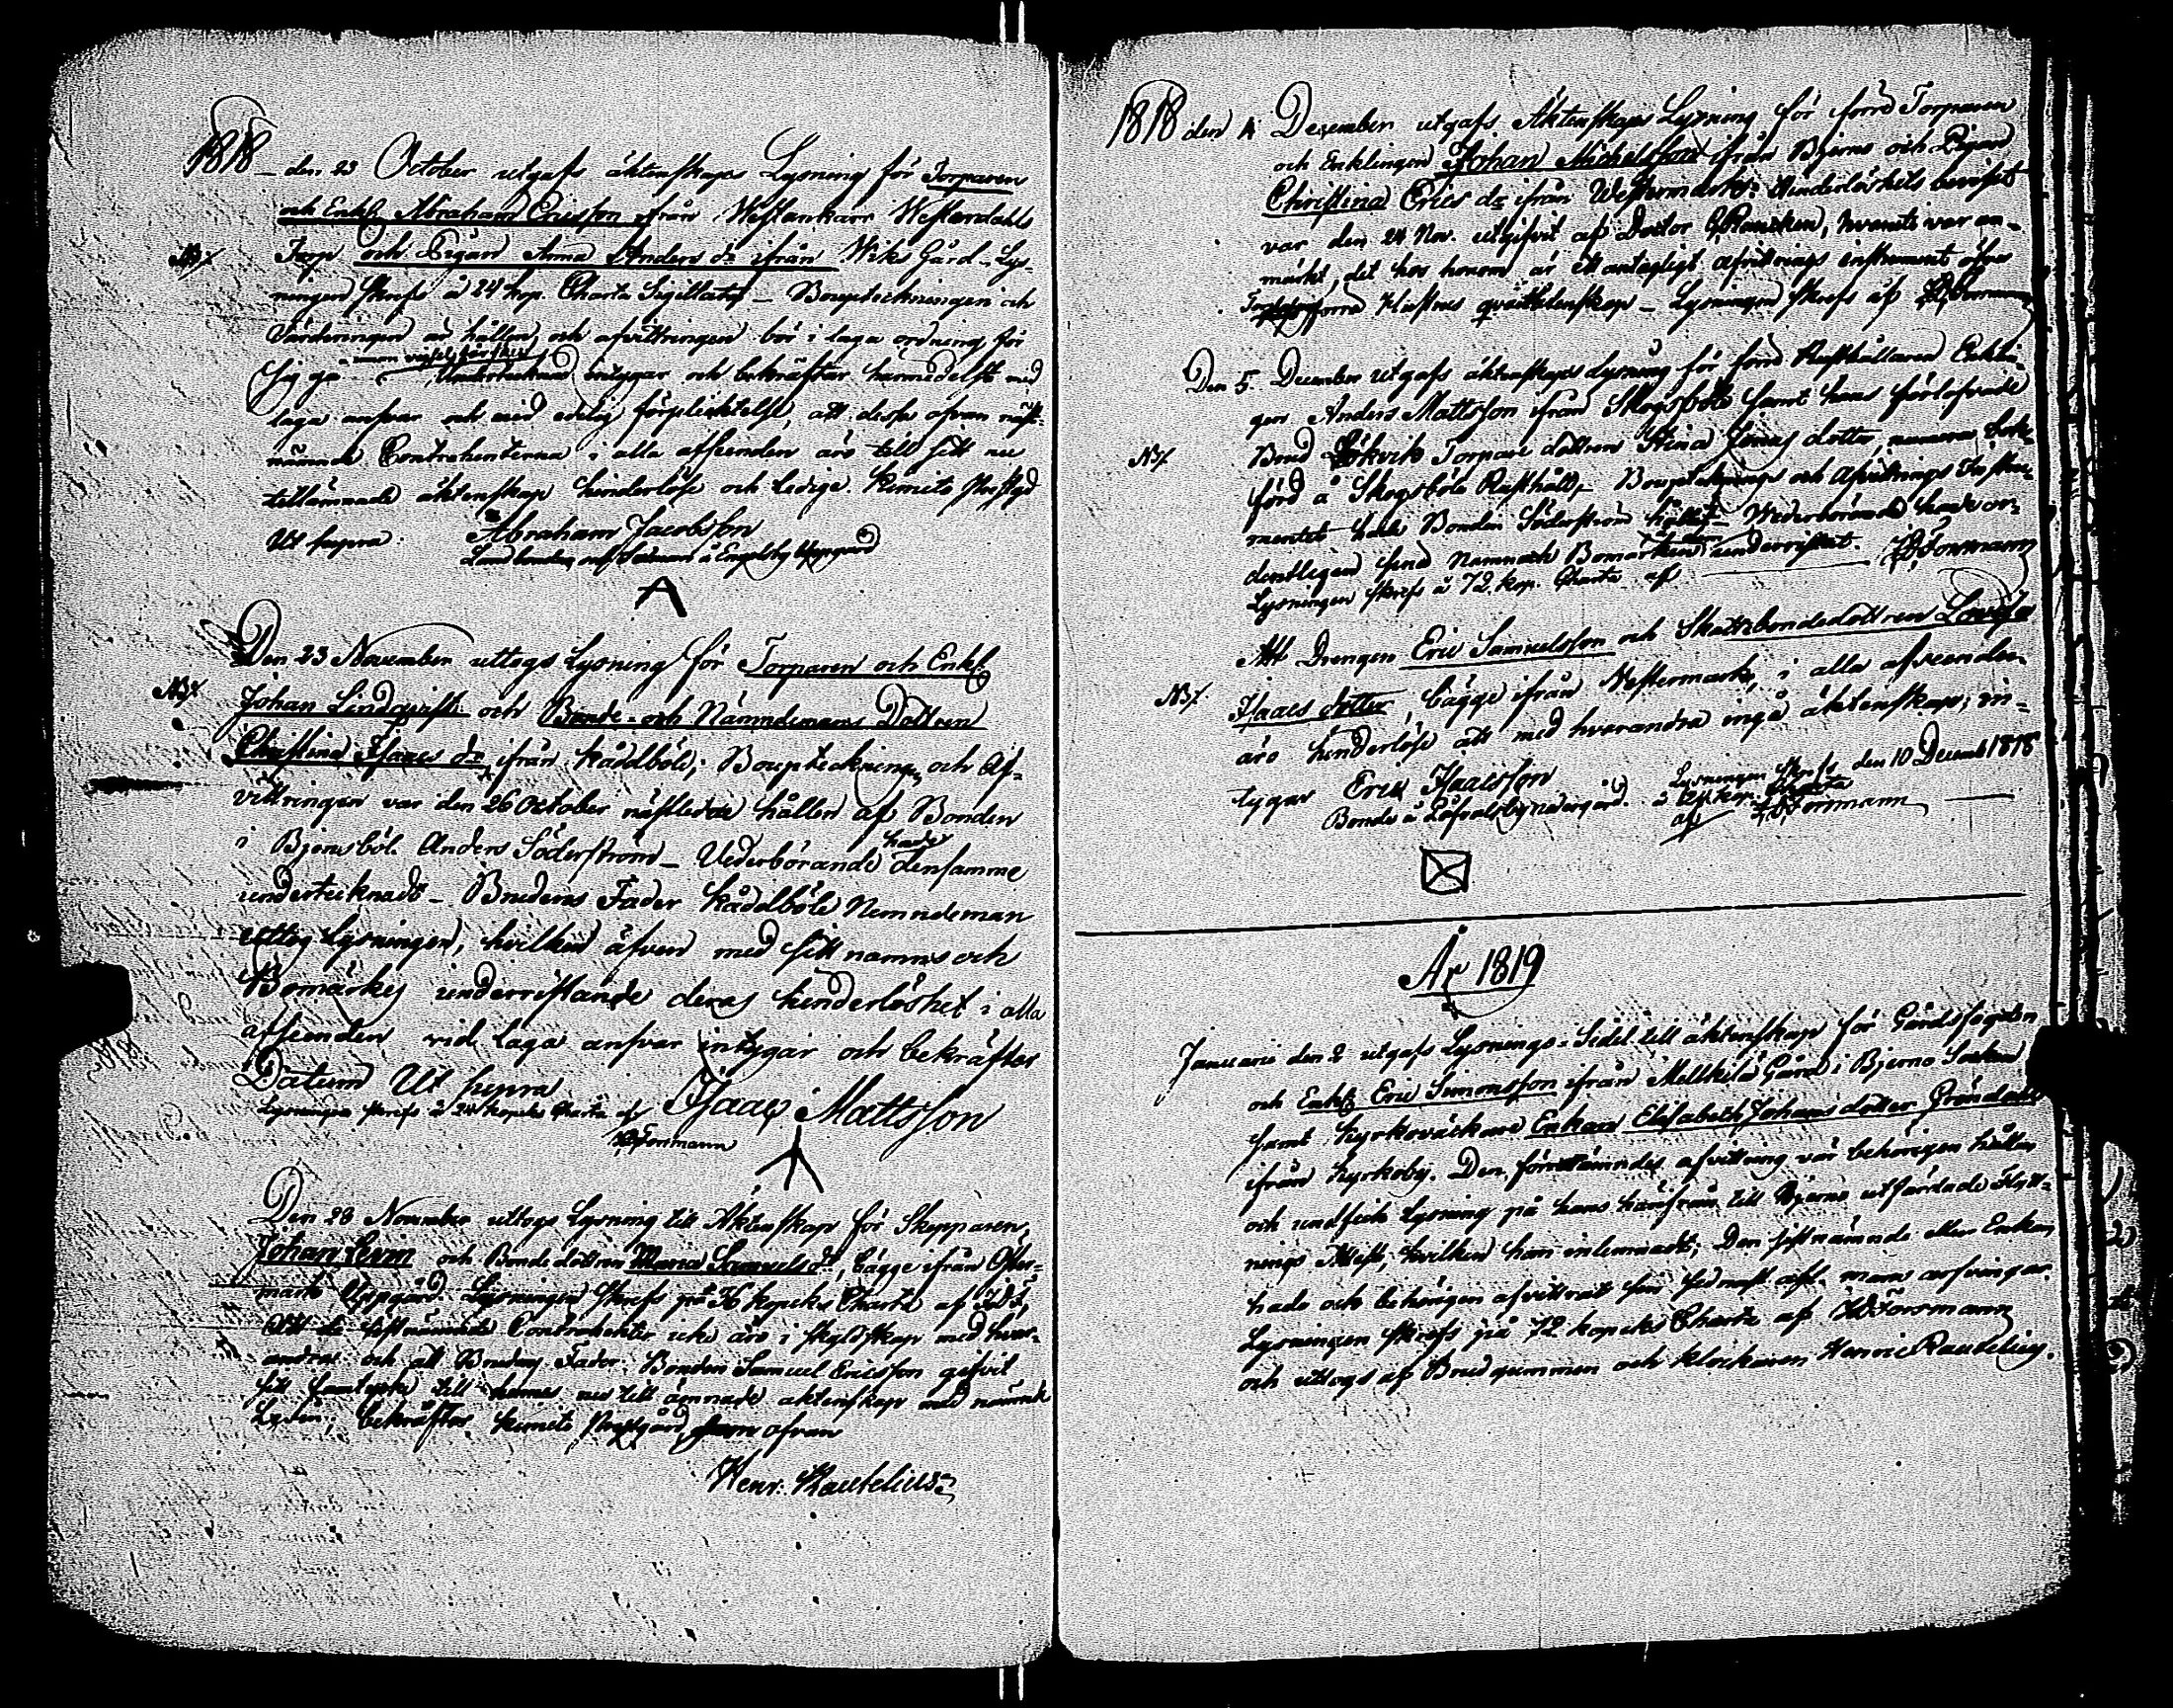 1818 – den 23 October utgafs äktenskaps Lysning för Torparen
och Enkl. Abraham Ericsson ifrån Westankarr Westerdahls
NB/. Torp och Pigan Anna Anders dr ifrån Wiks Gård – Lys-
ningen skrefs å 24 kop. Charta Sigillata – Boupteckningen och
Värderingen är hållen och afvittringen bör i laga ordning för
sig gå Undertecknad intygar och bekräftar härmedelst med
laga ansvar och med edelig förpliktelse, att desse ofvan näst-
nämnde Contrahenterna i alla afseenden äro till sitt nu
tillämnade äktenskap hinderlöse och ledige. Kimito Prestgd
Ut supra. Abraham Jacobsson
Landbonden å Engelsby Uppgård
Den 23 November uttogs Lysning för Torparen och Enkl.
NB/. Johan Lindqvist och Bonde- och Nämndemans Dottren
Christina Isaacs dr ifrån Kåddböle; Bouptecknings och Af-
vittringen var den 26 October nästledne hållen af Bonden
i Bjensböl. Anders Söderström – Vederbörande hade densamme
undertecknadt – Brudens Fader Kåddböle Nemndeman
uttog Lysningen, hvilken äfven med sitt namns och
Bomärkes underristande deras hinderlöshet i alla
afseenden vid laga ansvar intygar och bekräftar
Datum Ut supra Isaac Mattsson
Lysningen skrefs å 24 kopeks Charta af
Forsmann
Den 28 November uttogs Lysning till Äktenskap för Skepparen
Johan Levin och Bonde dottren Maria Samuels dr, bägge ifrån Öster-
mark Uppgård. Lysningen skrefs på 36 kopeks Charta af
Att de sistnämnde Contrahenter icke äro i skyldskap med hvar-
andra och att Brudens Fader Bonden Samuel Ericsson gifvit
sitt samtycke till hennes nu till ämnade äktenskap med nämnde
bekräftar Kimito Prestgård ofvan
Henr. Rautelius
1818 den 4 December utgafs Äktenskaps Lysning för förre Torparen
och Enklingen Johan Michelsson ifrån Bjerno och Pigan
Christina Erics dr ifrån Westermark: Hinderlöshets beviset
var den 24 Nov. utgifvit af Doctor Rancken, hvaruti var an-
märkt, det hos honom är ett antagligt afvittrings instrument öfver
förra Hustrus qvarlåtenskap – Lysningen skrefs af Forsmann
Den 5. December utgafs äktenskaps Lysning för förre Rusthållaren Enklin-
gen Anders Mattsson ifrån Skogsböle samt hans förlofvade
NB/. Brud Lökvik Torpare dottren Stina Jonas dotter, numera bok-
förd å Skogsböle Rusthåll – Bouptecknings och Afvittrings Instru-
mentet hade Bonden Söderström hållit – Wederbörande hade or-
dentligen sina Namn och Bomärken underristat.
Lysningen skrefs å 72 kop. Charta af Forsmann
Att Drengen Eric Samuelsson och Skattebondedottren Lovisa
NB/. Isaacs dotter, bägge ifrån Westermark, i alla afseenden
äro hinderlöse att med hvarandra ingå äktenskap; in-
tygar Eric Isacsson Lysningen skrefs den 10 Decemb 1818
Bonde å Löfvalsby Nedergård. å 24 kop. Charta
af Forsmann
År 1819
Januarii den 2 utgafs Lysnings-Sedel till äktenskap för Gårdsfogden
och Enkl. Eric Simonsson ifrån Mellkila Gård i Bjerno Socken
samt Kyrkoväckare Enkan Elisabeth Johans dotter Gröndahl
ifrån Kyrkoby. Den förrnämndes afvittring var behörigen hållen
och undfick Lysning på hans härifrån till Bjerno utfärdade Flytt-
nings Attest, hvilken han inlemnadt; Den sistnämnde eller Enkan
hade och behörigen afvittrat sin sednast afl. mans arfvingar.
Lysningen skrefs på 72 kopeks Charta af Forsmann
och uttogs af Brudgummen och klockaren Henric Rautelius.